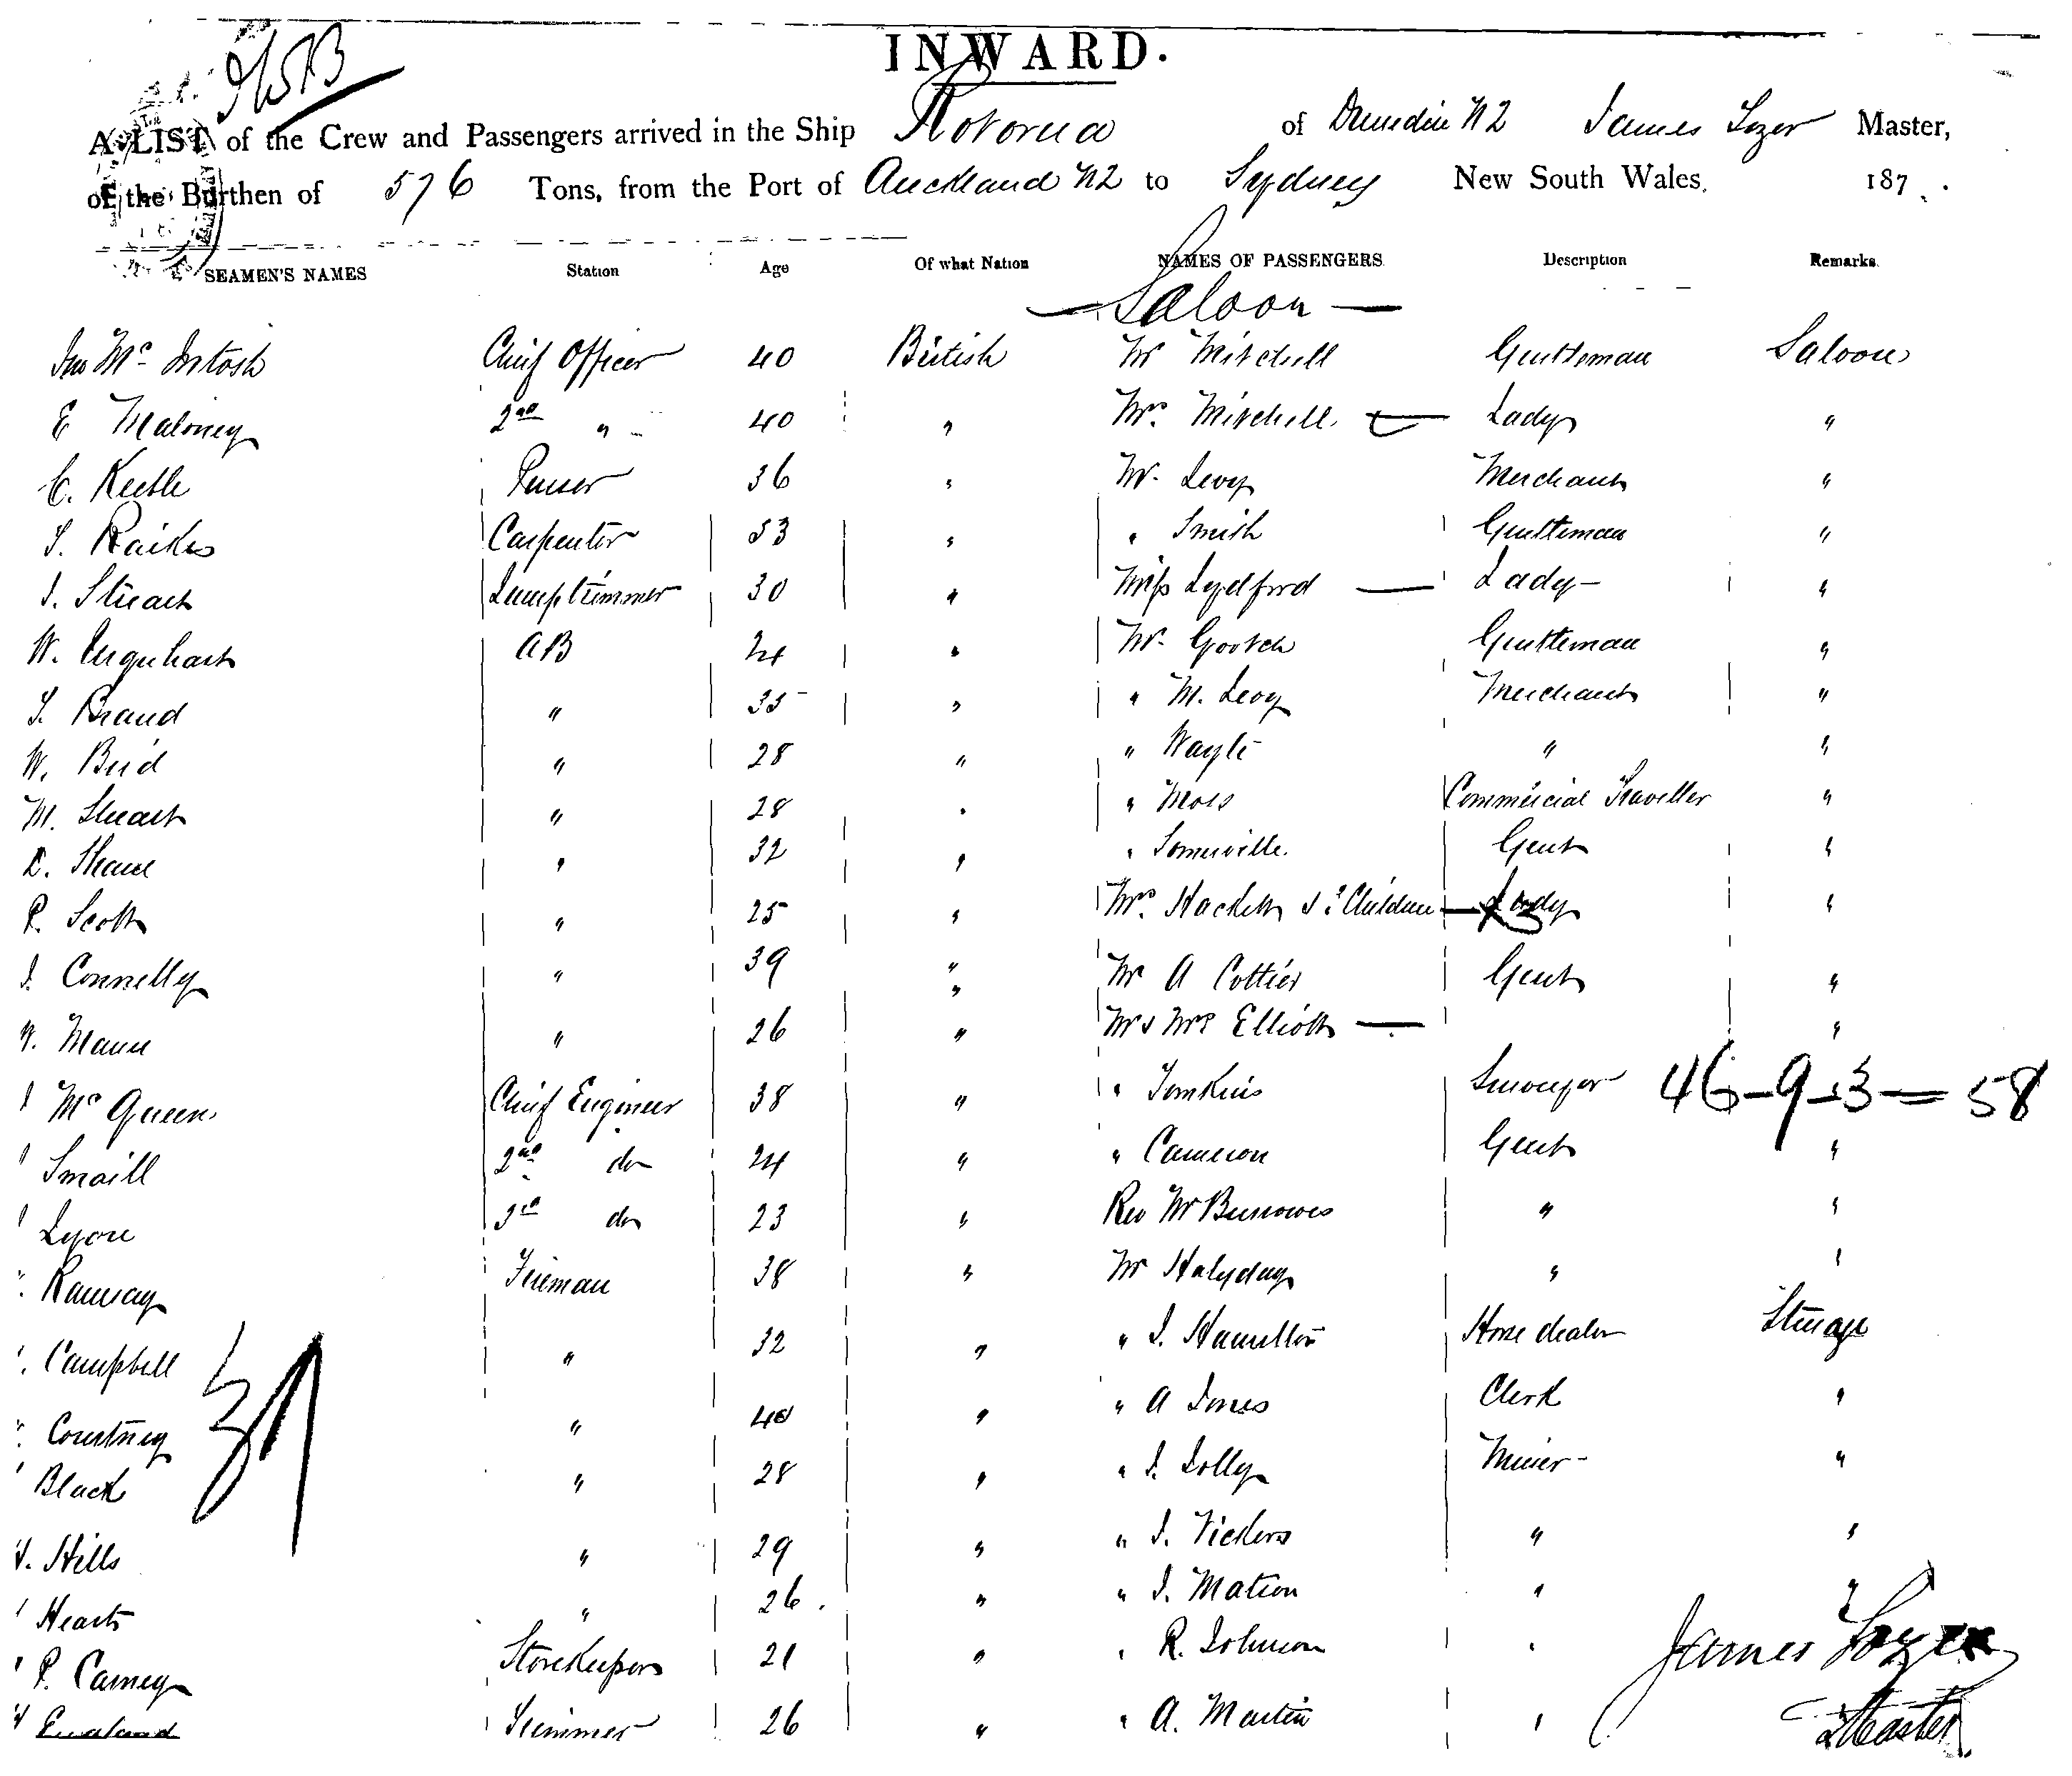 INWARD.
A LIST of the Crew and Passengers arrived in the Ship Rotorua of Dunedin NZ James Lozer Master,
of the Burthen of 576 Tons, from the Port of Auckland NZ to Sydney New South Wales, 187 .
SEAMEN'S NAMES Station Age Of what Nation NAMES OF PASSENGERS Description Remarks.
— Saloon —
Jno McIntosh Chief Officer 40 British Mr Mitchell Gentleman Saloon
E Maloney 2nd " 40 " Mrs. Mitchell — Lady "
C. Keeble Purser 36 " Mr. Levy Merchant "
Raikes Carpenter 53 " " Smith Gentleman "
J. Stuart Lamptrimmer 30 " Miss Lydford — Lady "
W. Urquhart AB 24 " Mr. Gootch Gentleman "
Brand " 35 " " M. Levy Merchant "
W. Bird " 28 " " Wayte " "
M. Stuart " 28 " " Moss Commercial Traveller "
" 32 " " Somerville. Gent "
P. Scott " 25 " Mrs. Hackett & 2 Children — Lady "
J. Connelly " 39 " Mr A Cottier Gent "
Mann " 26 " Mr & Mrs Elliott — "
McQueen Chief Engineer 38 " " Tomkins Surveyor 46-9-3=58
Smaill 2nd do 24 " " Cameron Gent "
Lyon 3rd do 23 " Rev Mr Burrowes " "
Ramsay Fireman 38 " Mr Halyday " "
Campbell " 32 " " J. Hamilton Horse dealer Steerage
Courtney " 40 " " A Jones Clerk "
Black " 28 " " J. Jolly Miner "
Hills " 29 " " J. Vickers " "
" 26 " " J. " "
P. Carney Storekeeper 21 " " R. Johnson " James
England Trimmer 26 " " A. Martin " Master